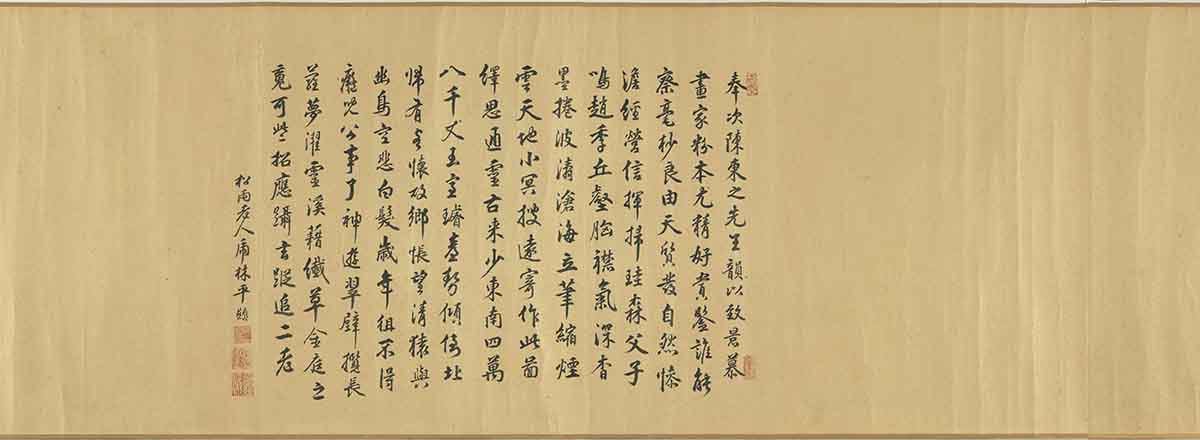 奉次陳東之先生韻以致景慕
畫家粉本尤精好賞鑒誰能
察毫杪良由天質發自然慘
澹經營信揮掃珪森父子
鳴趙季丘壑胸襟氣深杳
墨捲波濤滄海立筆縮煙
雲天地小冥搜遠寄作此啚
繹思通靈古來少東南四萬
八千丈玉室璿臺勢傾倚北
歸有客懷故鄉悵望清猿與
幽鳥空悲白髮歲年徂不得
癡兒公事了神遊翠壁攬長
蘿夢濯靈溪藉纖草金庭之
寃可些招應躡玄蹤追二老
松雨老人